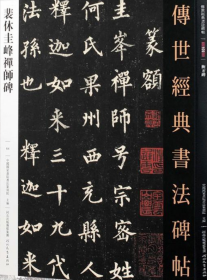 傳世經典書法碑帖
篆額
圭峯禪師號宗密姓
釋迦如來三十九代
法孫也釋迦如
裴休圭峰禪師碑